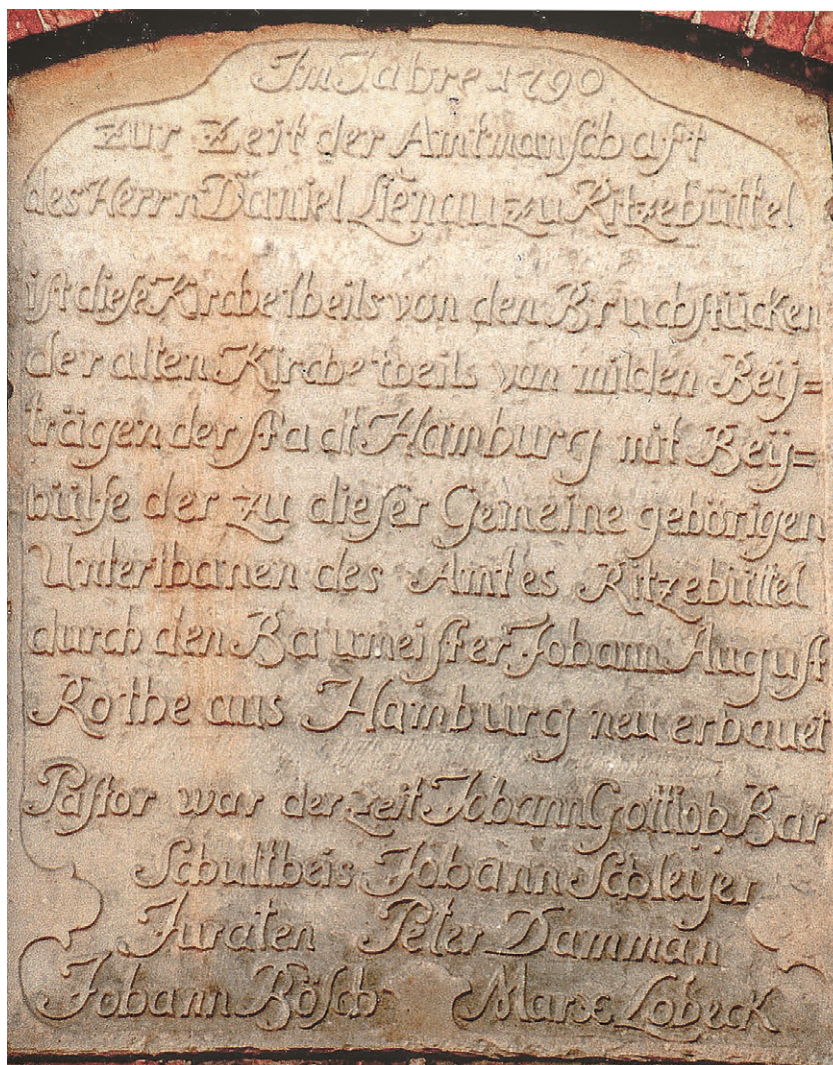 Im Jahre 1790
zur Zeit der Amtmanſchaft
des Herrn Daniel Lienau zu Ritzebüttel
iſt dieſe Kirche theils von den Bruchſtücken
der alten Kirche theils von milden Beij=
trägen der ſtadt Hamburg mit Beÿ=
hülfe der zu dieſer Gemeine gehörigen
Unterthanen des Amtes Ritzebüttel
durch den Baumeiſter Johann Auguſt
Rothe aus Hamburg neu erbauet
Paſtor war der zeit Johann Gottlob Bar
Schultheis Johann Schleyer
Juraten Peter Damman
Johann Böſch Marx Lobeck